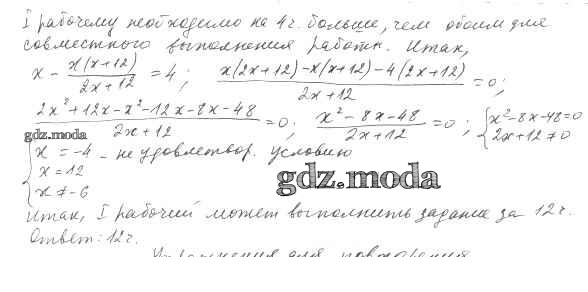 I рабочему необходимо на 4 г. больше, чем обоим для
совместного выполнения работы. Итак,
x - x(x+12)/2x+12 = 4; x(2x+12)-x(x+12)-4(2x+12)/2x+12 = 0;
2x²+12x-x²-12x-8x-48/2x+12 = 0; x²-8x-48/2x+12 = 0; { x²-8x-48=0
2x+12≠0
gdz.moda
{ x = -4 - не удовлетвор. условию
x = 12
x ≠ -6
gdz.moda
Итак, I рабочий может выполнить задание за 12 г.
Ответ: 12 г.
Упражнения для повторения